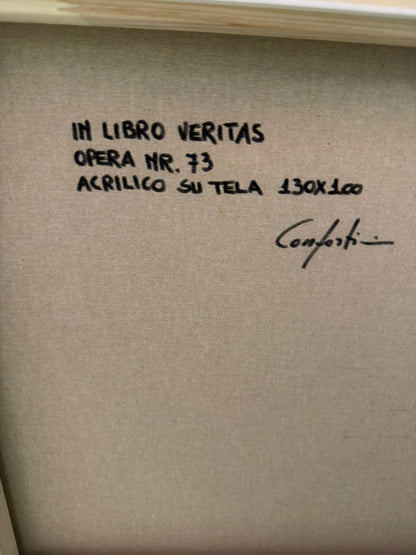 IN LIBRO VERITAS
OPERA NR. 73
ACRILICO SU TELA 130X100
Conforti